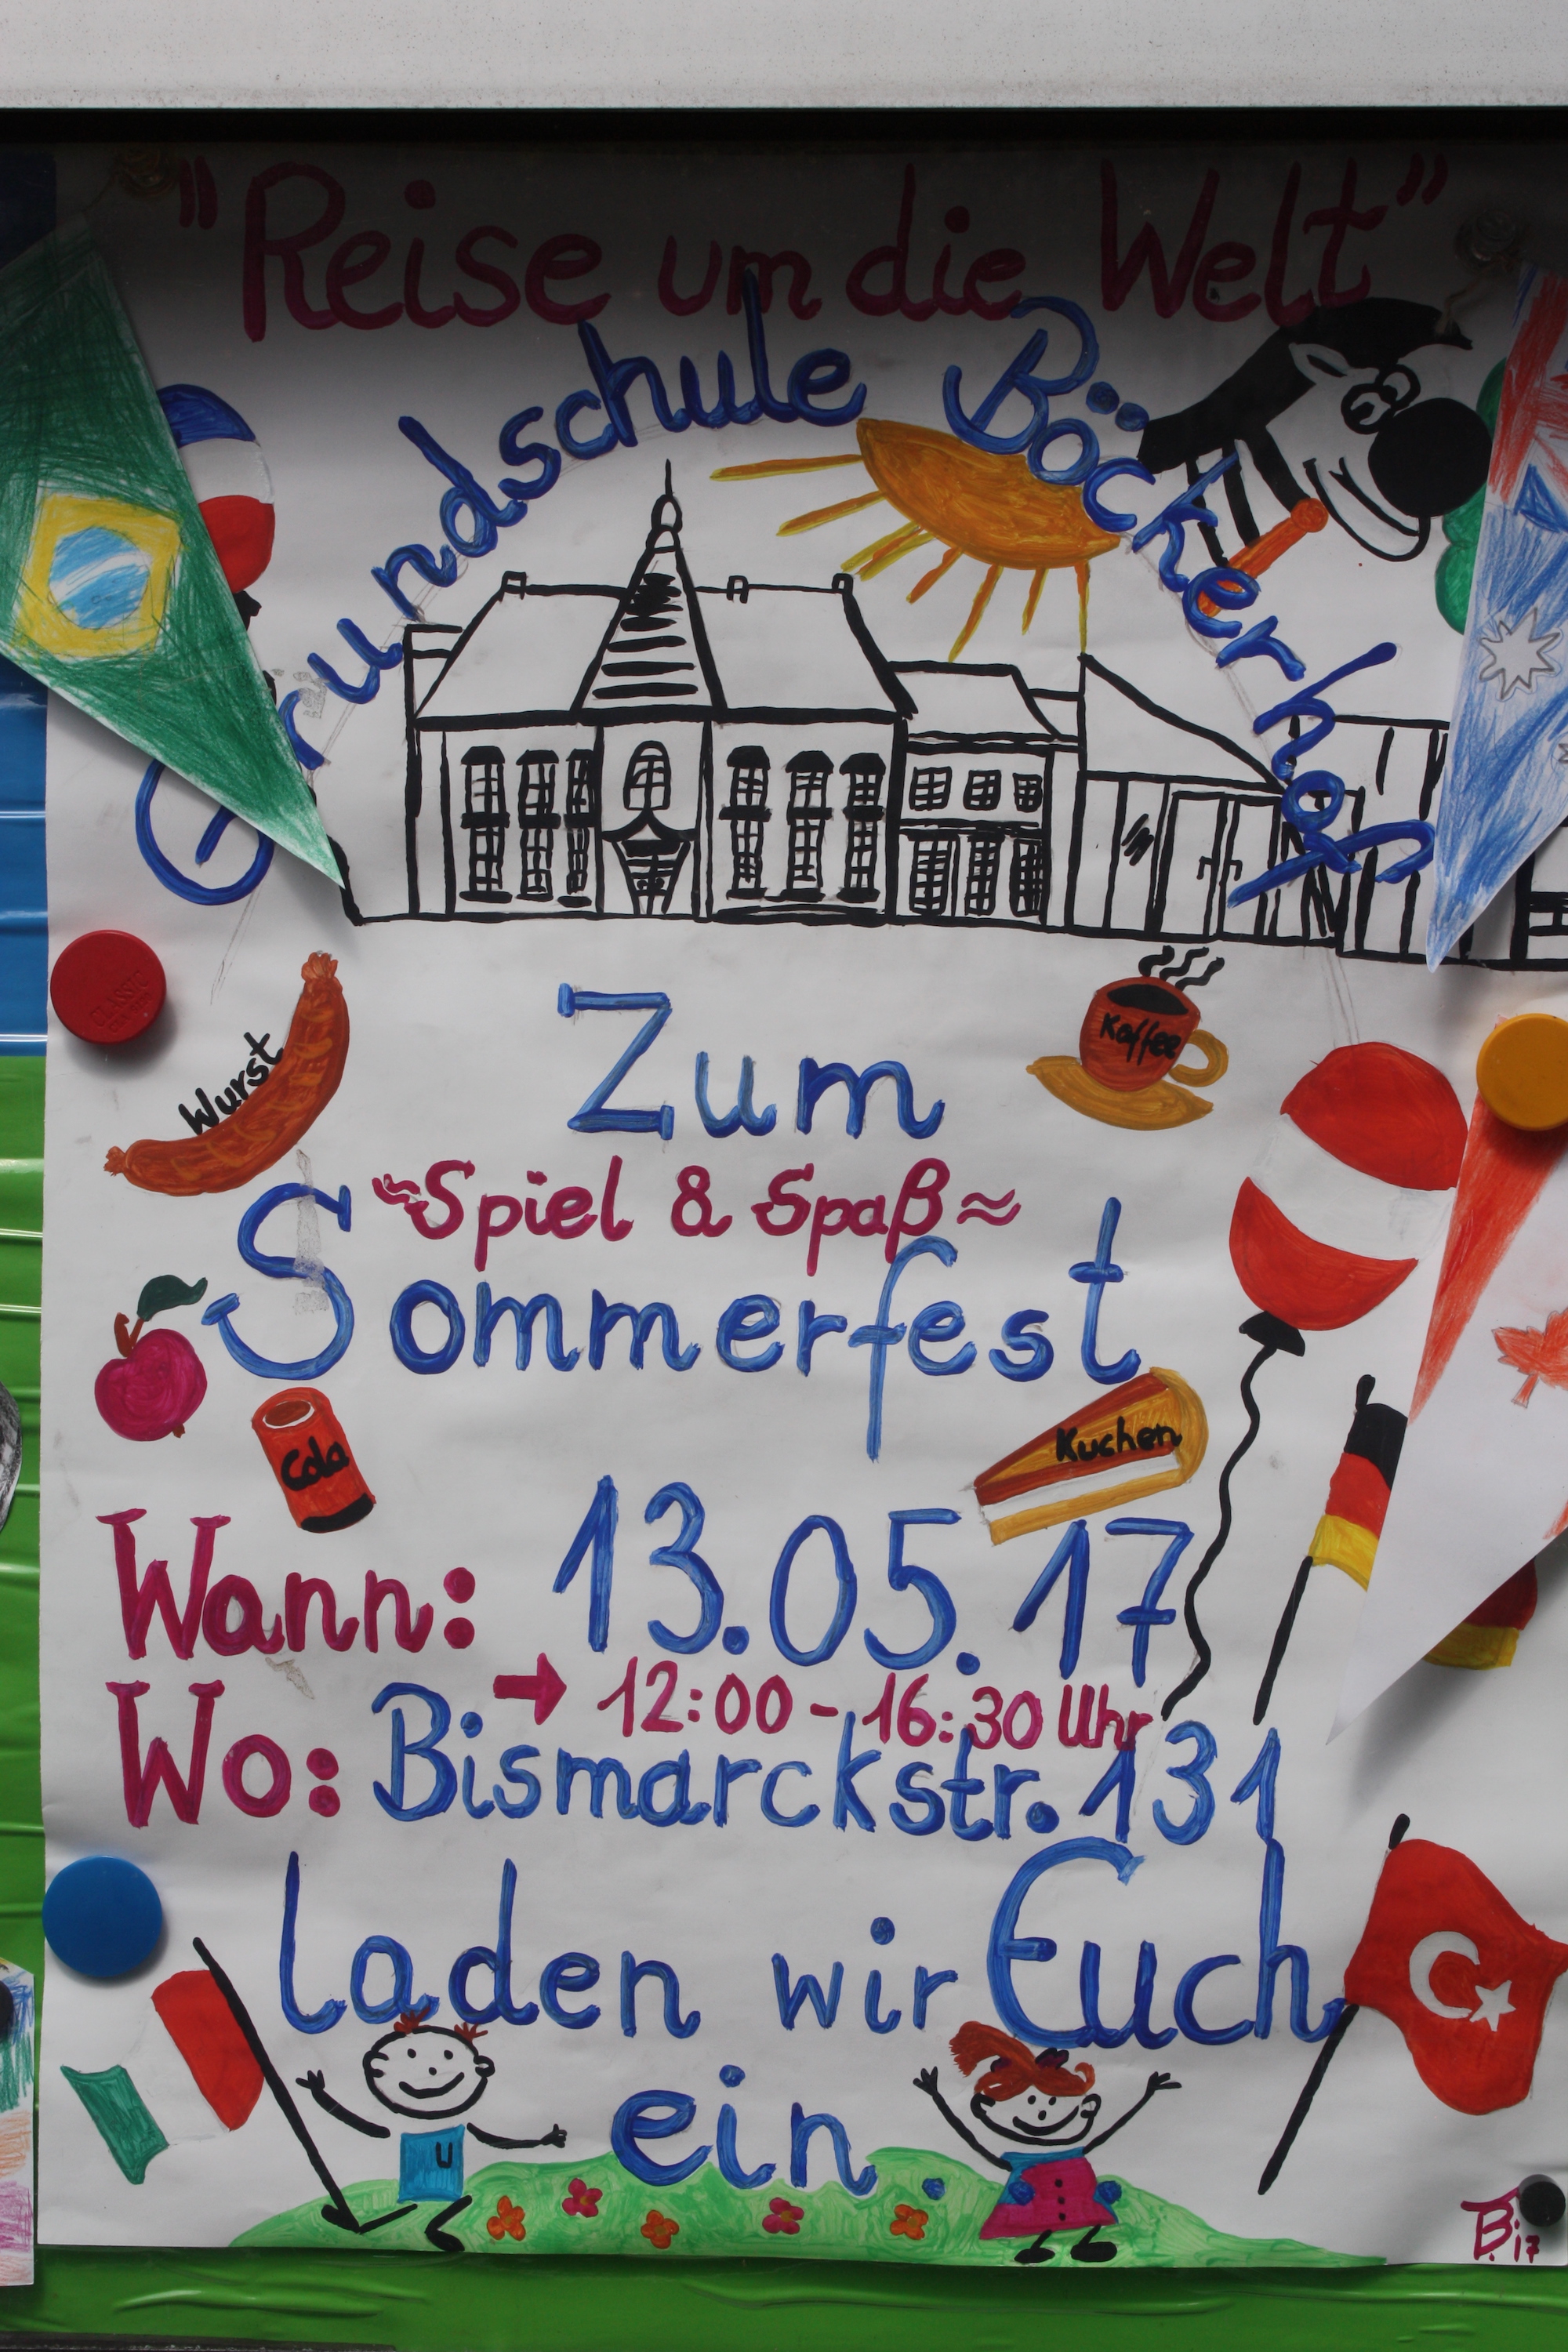 "Reise um die Welt"
Grundschule Böckerhof
Zum
Wurst
Kaffee
~Spiel & Spaß≈
Sommerfest
Cola
Kuchen
Wann: 13.05.17
→ 12:00 - 16:30 Uhr
Wo: Bismarckstr. 131
laden wir Euch
ein
U
B. 17